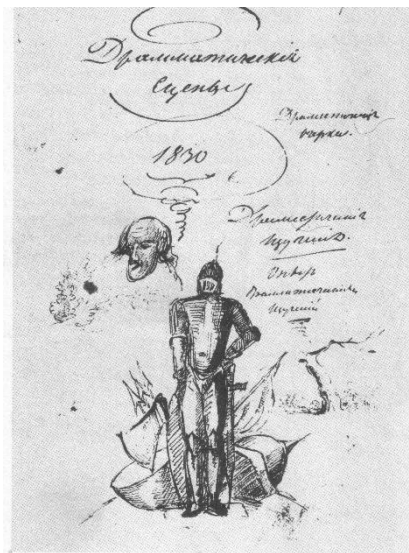 Драмматическія
Сцены
1830
Драмматическіе
очерки.
Драмматическія
изученія.
Опытъ
Драмматическихъ
изученій